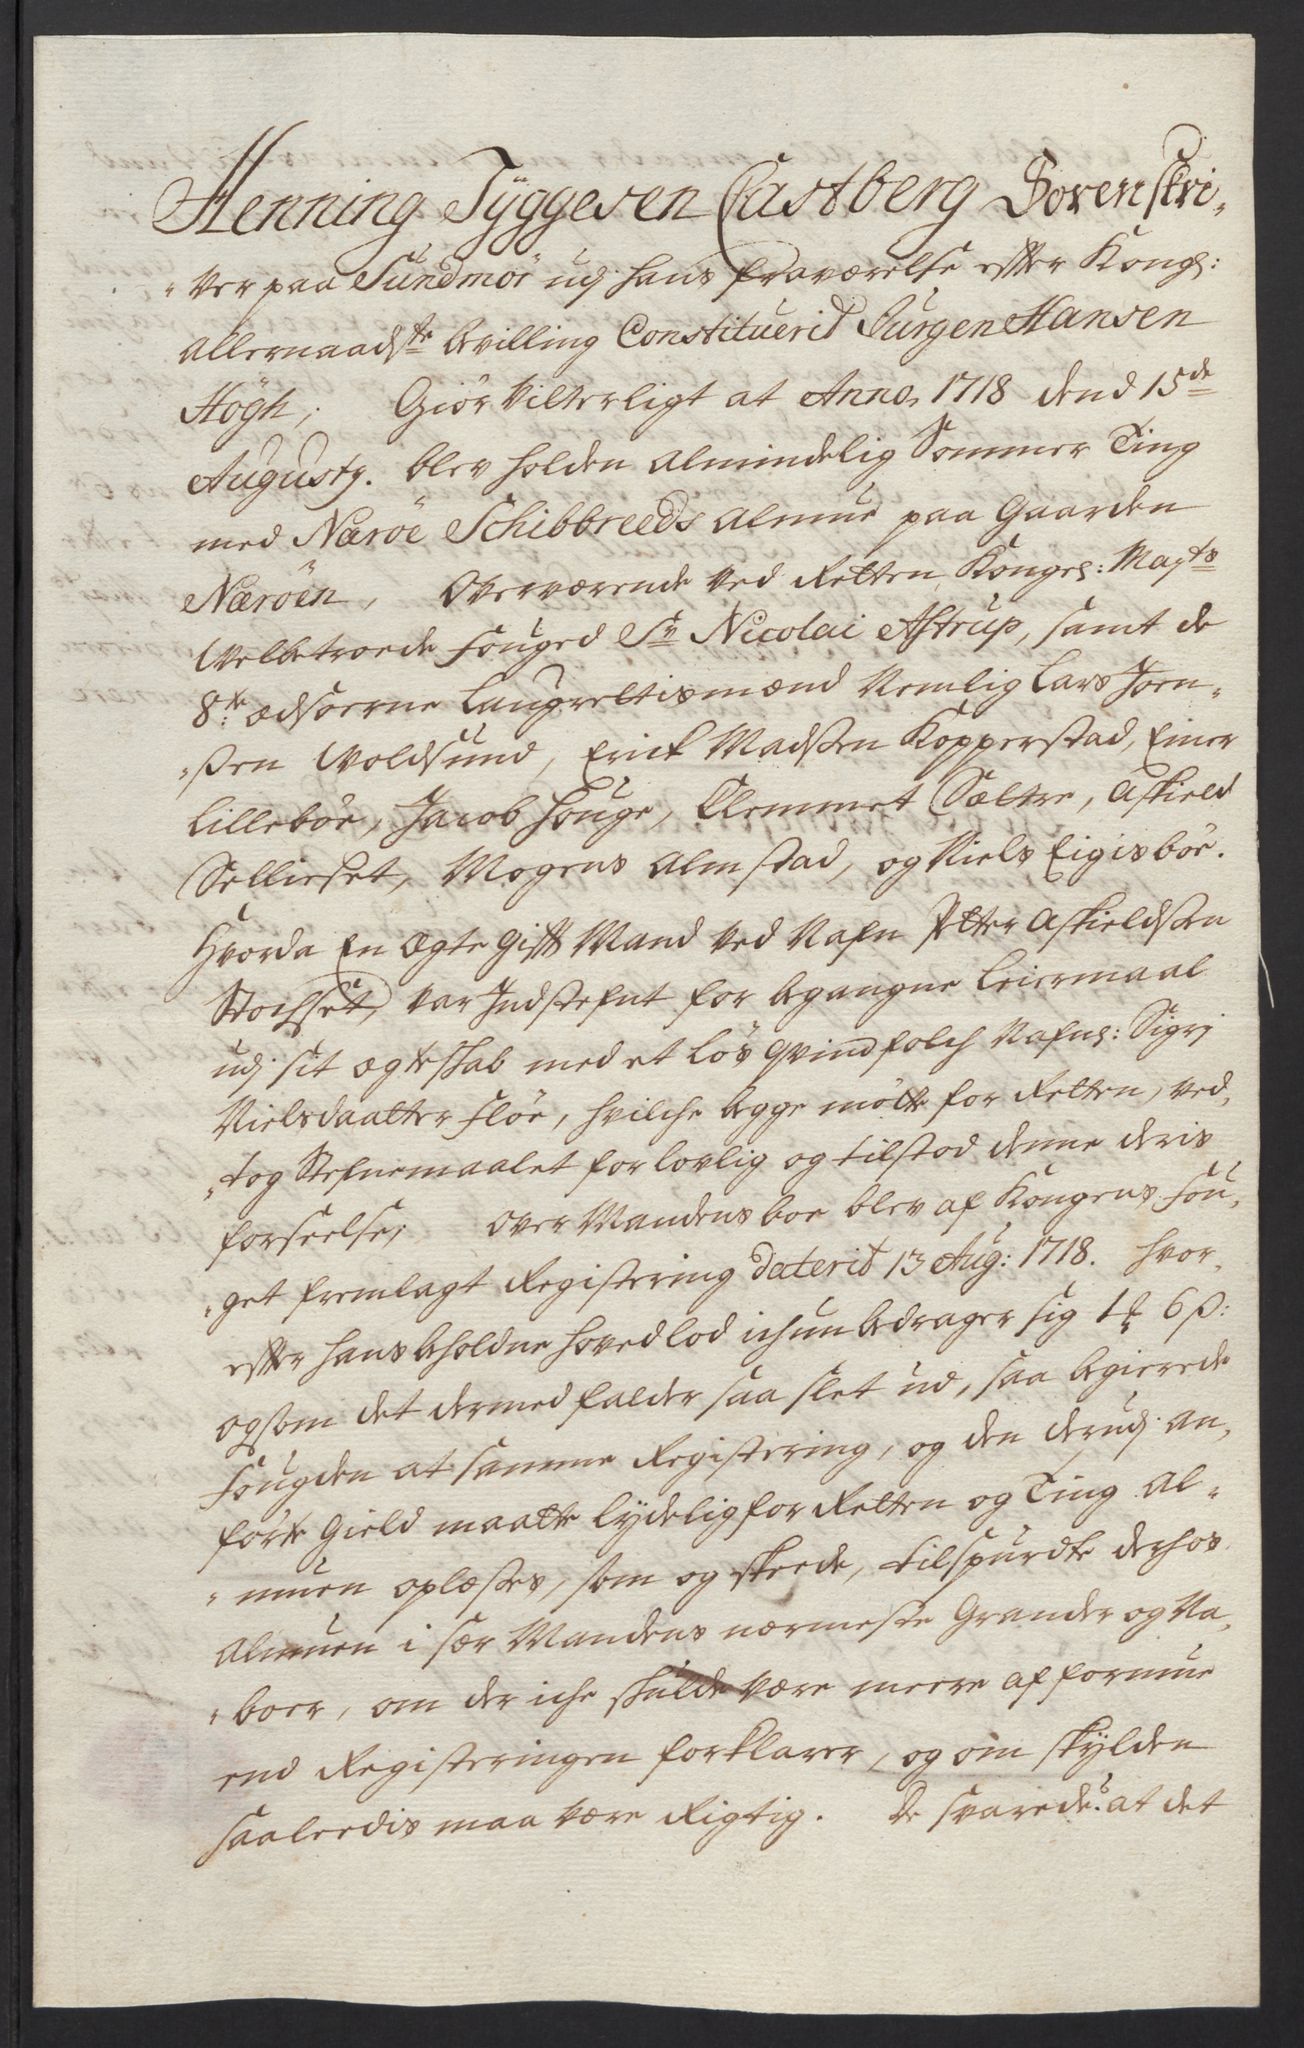 Henning Tÿggesen Castberg Sorenskri„
„ver paa Sundmör udj hans fraværelse efter Kongl:
allernaadste bevilling Constituerid Jurgen Hansen
Högh; Giör vitterligt at Anno 1718 dend 15de
Augusty. blev holden almindelig Sommer Ting
med Næröe Schibbreeds almue paa Gaarden
Næröen, Overværende ved Retten Kongel: Mayts
Velbetroede fouged Sr Nicolai Astrup, samt de
8te ædsoerne Laugrettismænd Nemlig Lars Joen„
„ßen Voldsund, Erich Madßen Kopperstad, Einer
Lilleböe, Jacob Houge, Clemmet Sætre, Askield
Sellieset, Mogens Almestad, og Niels Eigisböe.
Hvorda En Ægte gift Mand ved Nafn Petter Askieldßen
Stochset, var Indstefnt for begangne Leiermaal
udj sit ægteskab med et løs qvindfolch Nafnl: Sigrj
Nielsdaatter Flöe, hvilche begge mötte for Retten, ved„
„tog Stefnemaalet for lovlig og tilstod denne deris
forseelse; Over Mandens boe blev af Kongens fou„
„get fremlagt Registering daterit 13 Aug: 1718. hvor„
efter hans beholdne hovedlod ichun bedrager sig 1 ₰ 6 ß:
og som det dermed falder saa slet ud, saa begierede
fougden at samme Registering, og den derudj an„
förte Gield maatte lydelig for Retten og Ting al„
„muen oplæses, som og skeede, tilspurdte derhos
Almuen i sær Mandens nærmeste Grander og Na„
„boer, om der iche skulde være meere af formue
end Registeringen forklarer, og om skylden
saaleedis maa være Rigtig. De svarede: at det